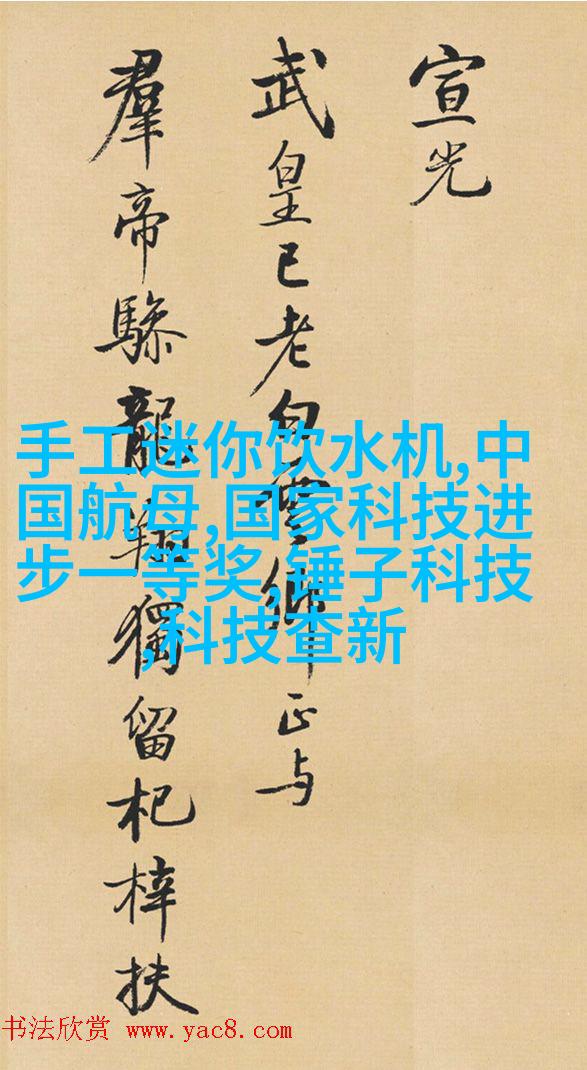 宣光
武皇已老白雲鄉正与
羣帝驂龍翔獨留杞梓扶
手工迷你饮水机,中
国航母,国家科技进
步一等奖,锤子科技
,科技查新
书法欣赏 www.yac8.com